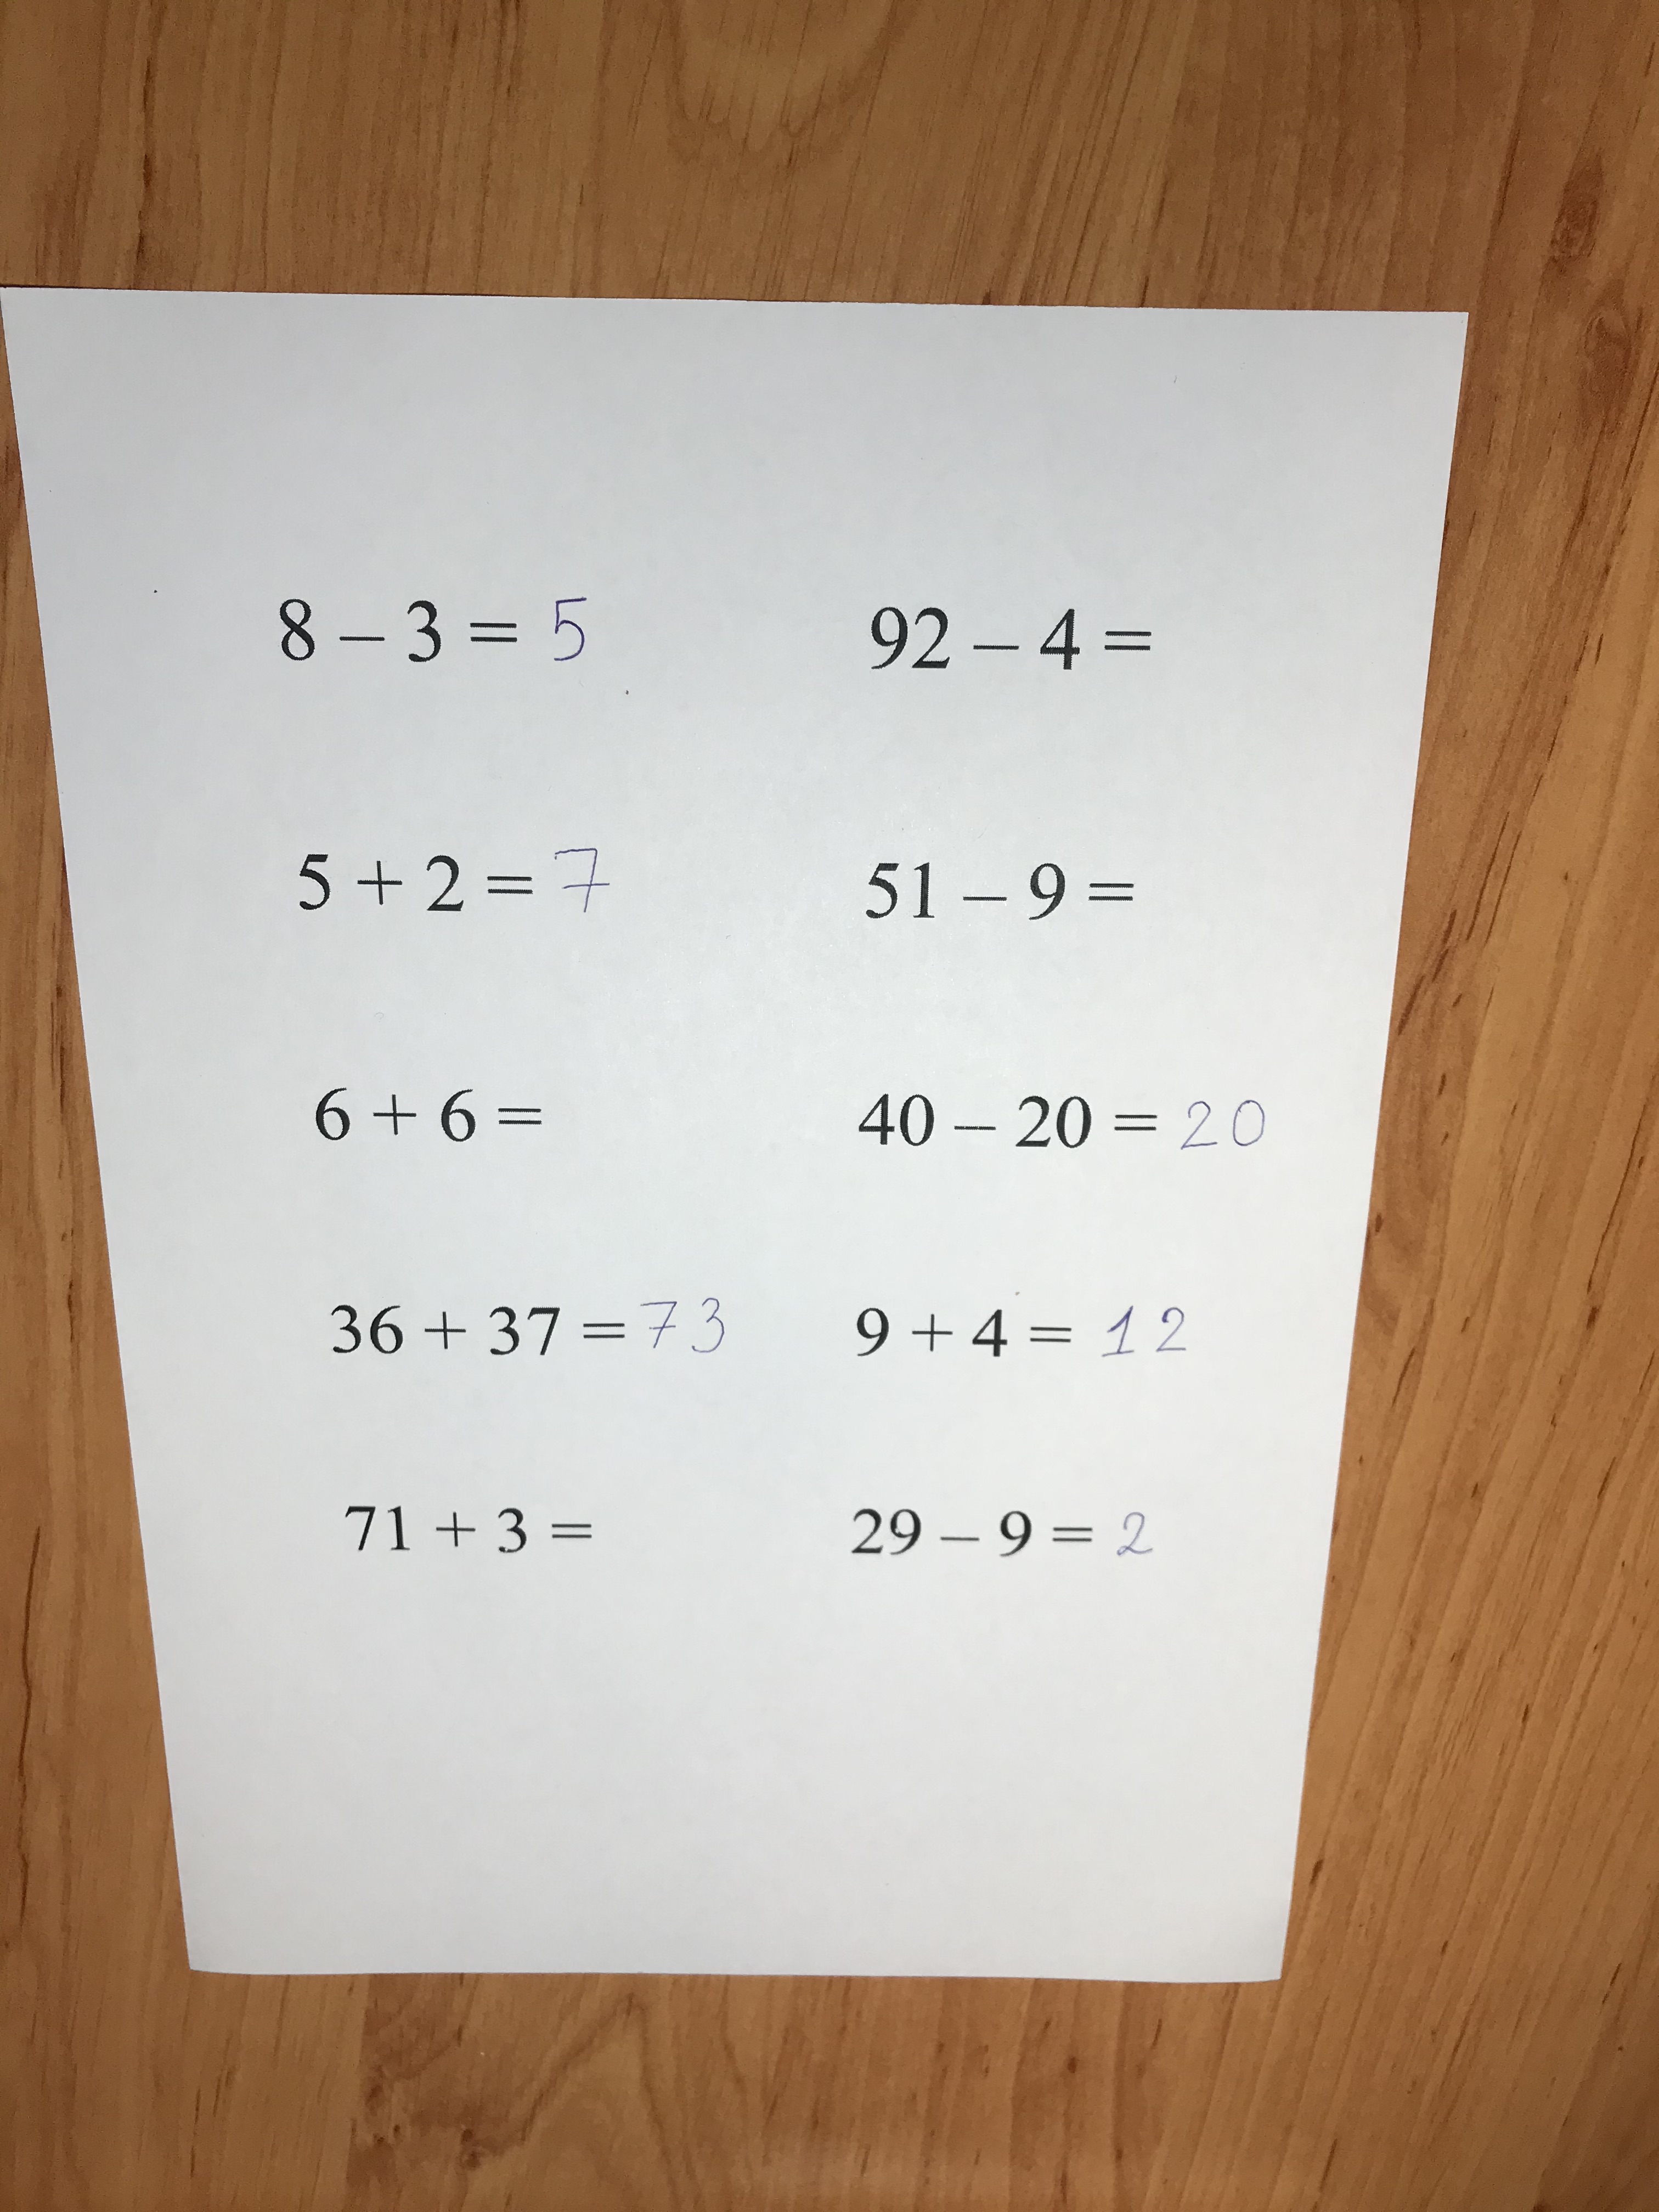 8 – 3 = 5
5 + 2 = 7
6 + 6 =
36 + 37 = 73
71 + 3 =
92 – 4 =
51 – 9 =
40 – 20 = 20
9 + 4 = 12
29 – 9 = 2